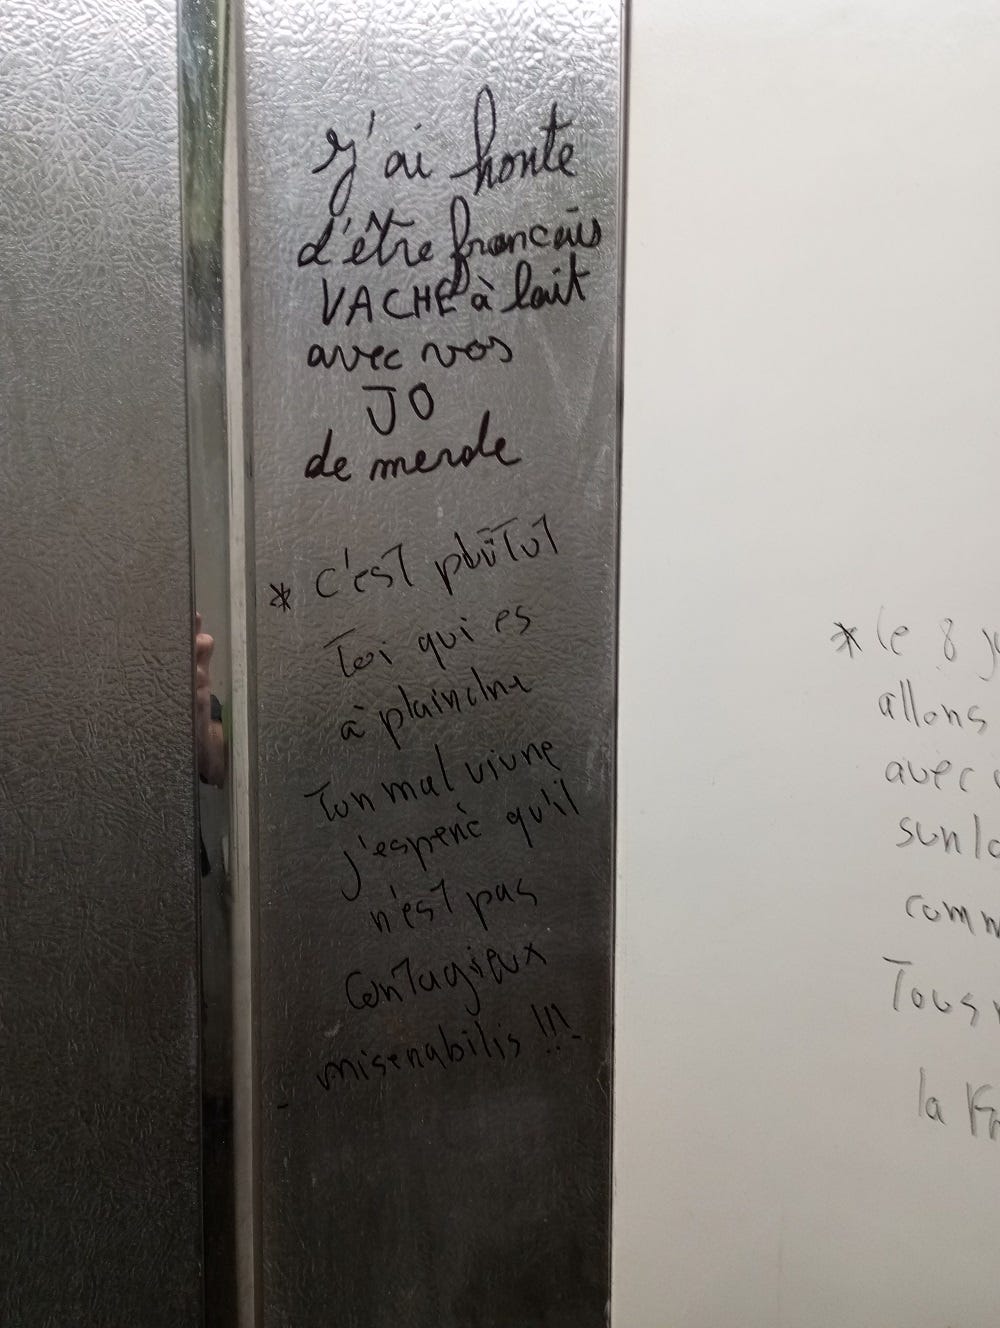 J'ai honte
d'être francais
VACHE à lait
avec vos
JO
de merde
* c'est plûtot
Toi qui es
à plaindre
Ton mal vivre
j'espère qu'il
n'est pas
contagieux
miserabilis !!!
* le 8
allons
avec
sur la
comm
Tous
la